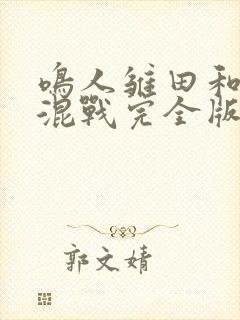 鳴人雏田和
混戰完全版
郭文婧